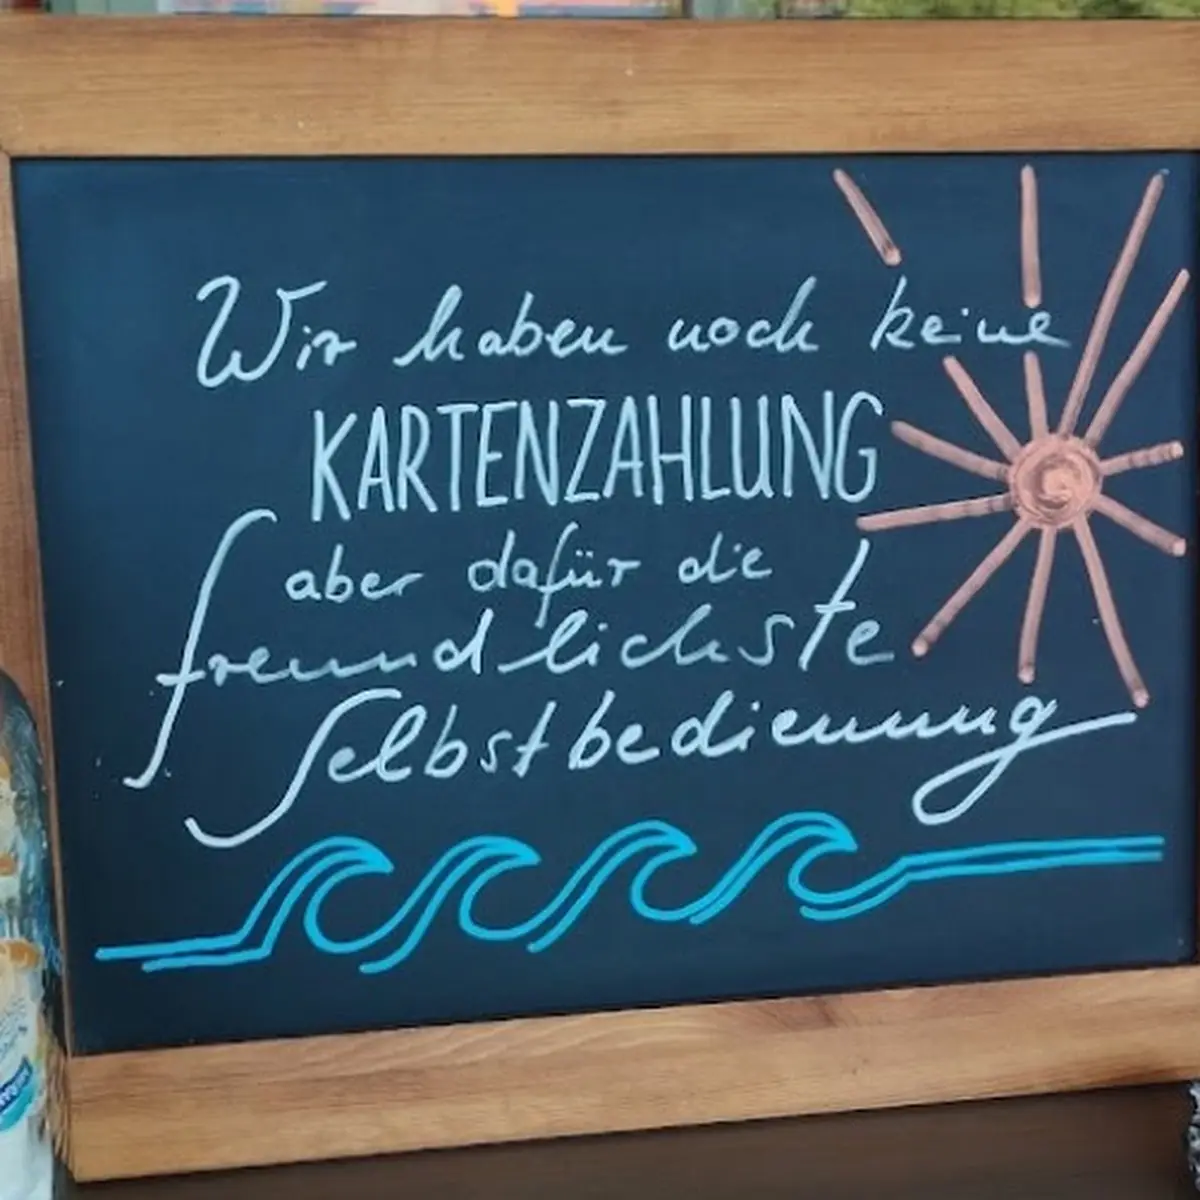 Wir haben noch keine
KARTENZAHLUNG
aber dafür die
freundlichste
Selbstbedienung